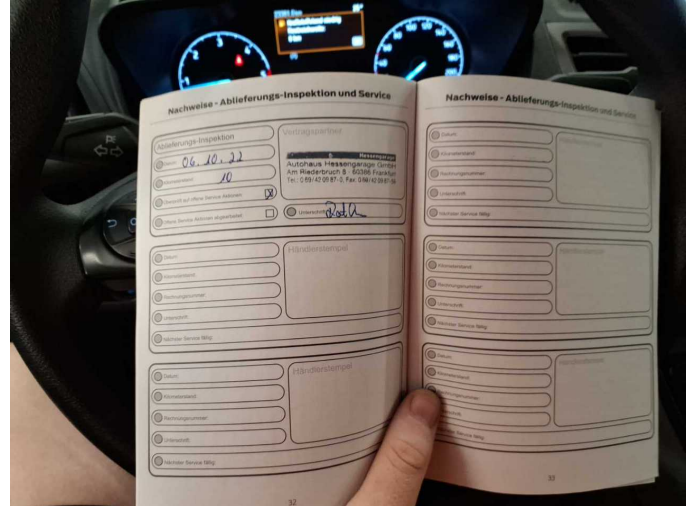 Kraftstoffstand niedrig
0 km
Nachweise - Ablieferungs-Inspektion und Service
Ablieferungs-Inspektion
Datum 06.10.22
Kilometerstand 10
Geprüft auf offene Service-Aktionen
Offene Service-Aktionen abgearbeitet
Vertragspartner
Hessengarage
Autohaus Hessengarage GmbH
Am Riederbruch 8 · 60386 Frankfurt
Unterschrift
Datum
Kilometerstand
Rechnungsnummer
Unterschrift
Nächster Service fällig
Händlerstempel
Datum
Kilometerstand
Rechnungsnummer
Unterschrift
Nächster Service fällig
Händlerstempel
32
Nachweise - Ablieferungs-Inspektion und Service
Datum
Kilometerstand
Rechnungsnummer
Unterschrift
Nächster Service fällig
Händlerstempel
Datum
Kilometerstand
Rechnungsnummer
Unterschrift
Nächster Service fällig
Händlerstempel
Datum
Kilometerstand
Rechnungsnummer
Unterschrift
Nächster Service fällig
Händlerstempel
33